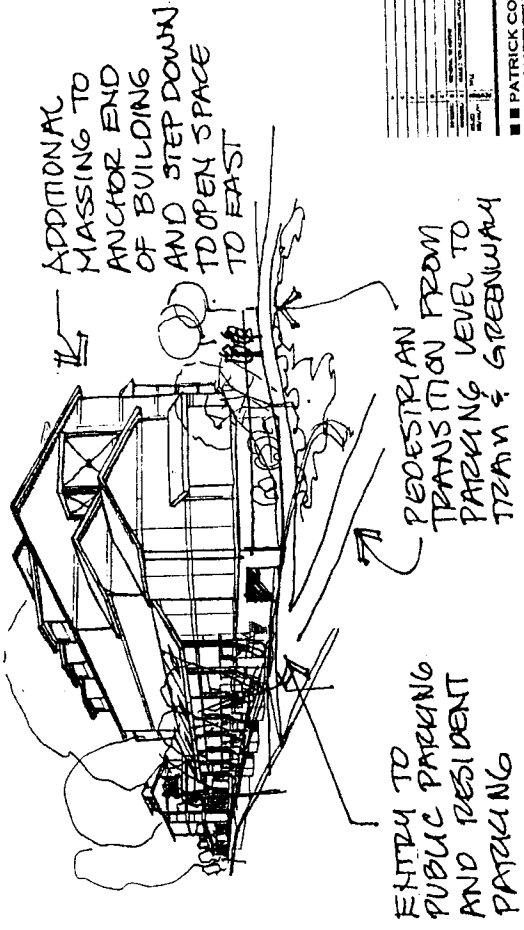 ADDITIONAL
MASSING TO
ANCHOR END
OF BUILDING
AND STEP DOWN
TO OPEN SPACE
TO EAST
PEDESTRIAN
TRANSITION FROM
PARKING LEVEL TO
TRAM & GREENWAY
ENTRY TO
PUBLIC PARKING
AND RESIDENT
PARKING
PATRICK CO